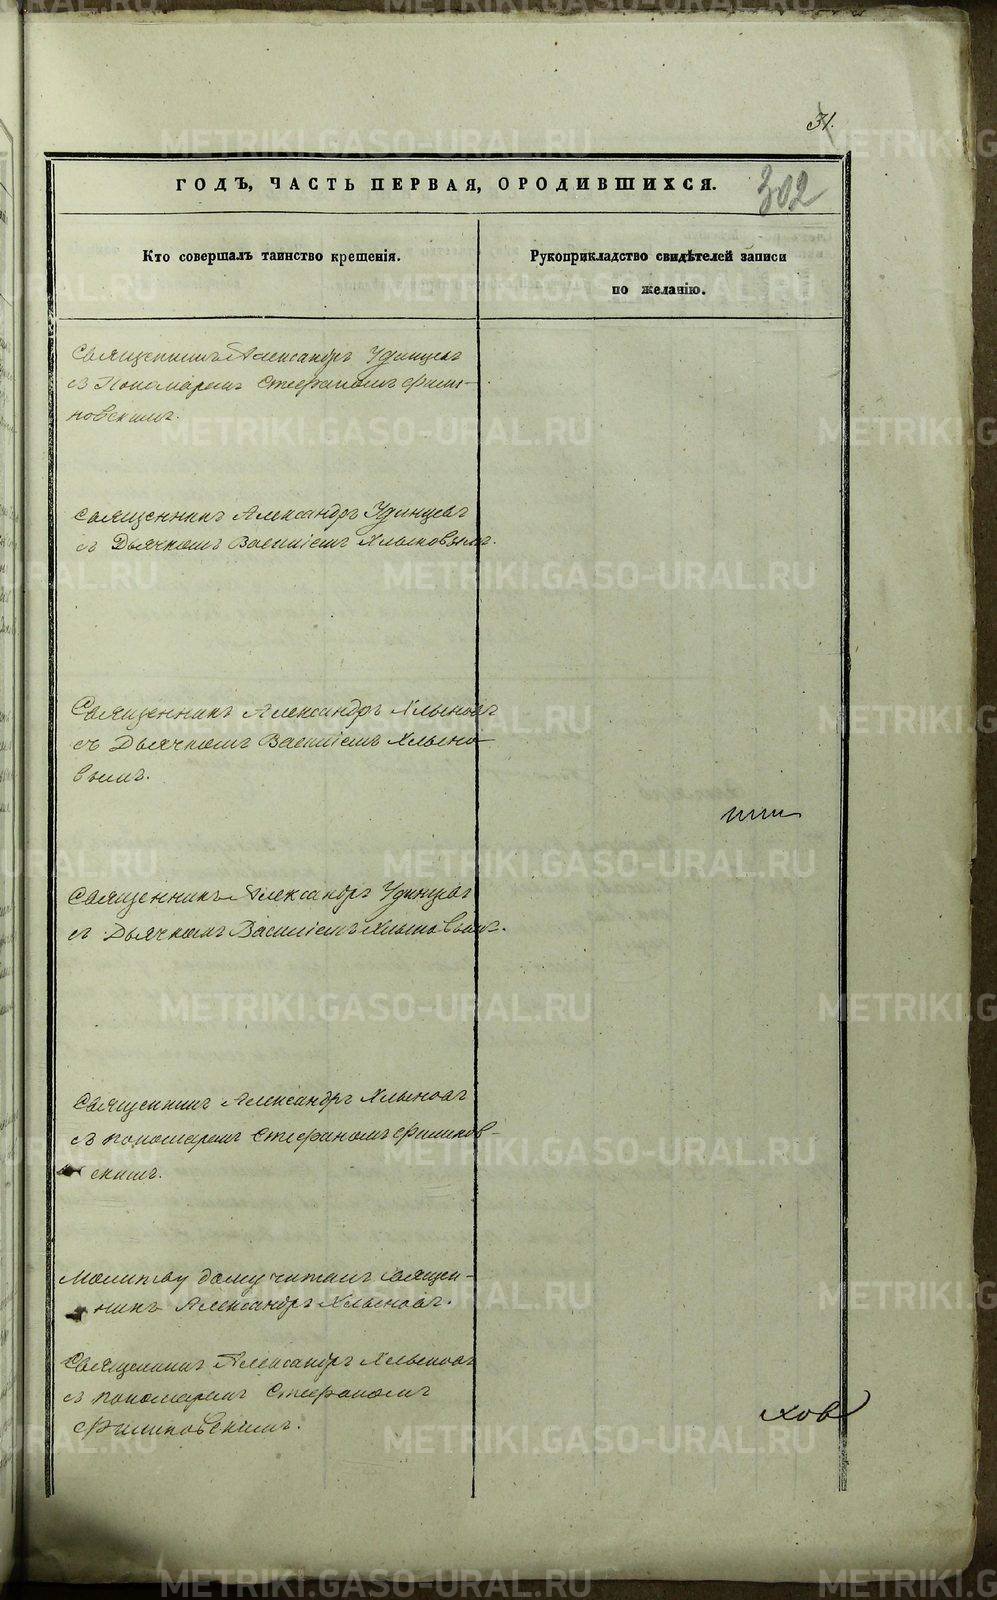 31.
ГОДЪ, ЧАСТЬ ПЕРВАЯ, О РОДИВШИХСЯ.
302
Кто совершалъ таинство крещенія.
Рукоприкладство свидѣтелей записи
по желанію.
Священникъ Александръ Удинцевъ
съ Пономаремъ Стефаномъ Фили-
повскимъ.
Священникъ Александръ Удинцевъ
съ Дьячкомъ Василіемъ Хлыновымъ.
Священникъ Александръ Хлыновъ
съ Дьячкомъ Василіемъ Хлыно-
вымъ.
Священникъ Александръ Удинцевъ
съ Дьячкомъ Василіемъ Хлыновымъ.
Священникъ Александръ Хлыновъ
съ пономаремъ Стефаномъ Филипов-
скимъ.
Молитву дому читалъ Священ-
никъ Александръ Хлыновъ.
Священникъ Александръ Хлыновъ
съ пономаремъ Стефаномъ
Филиповскимъ.
хов
METRIKI.GASO-URAL.RU